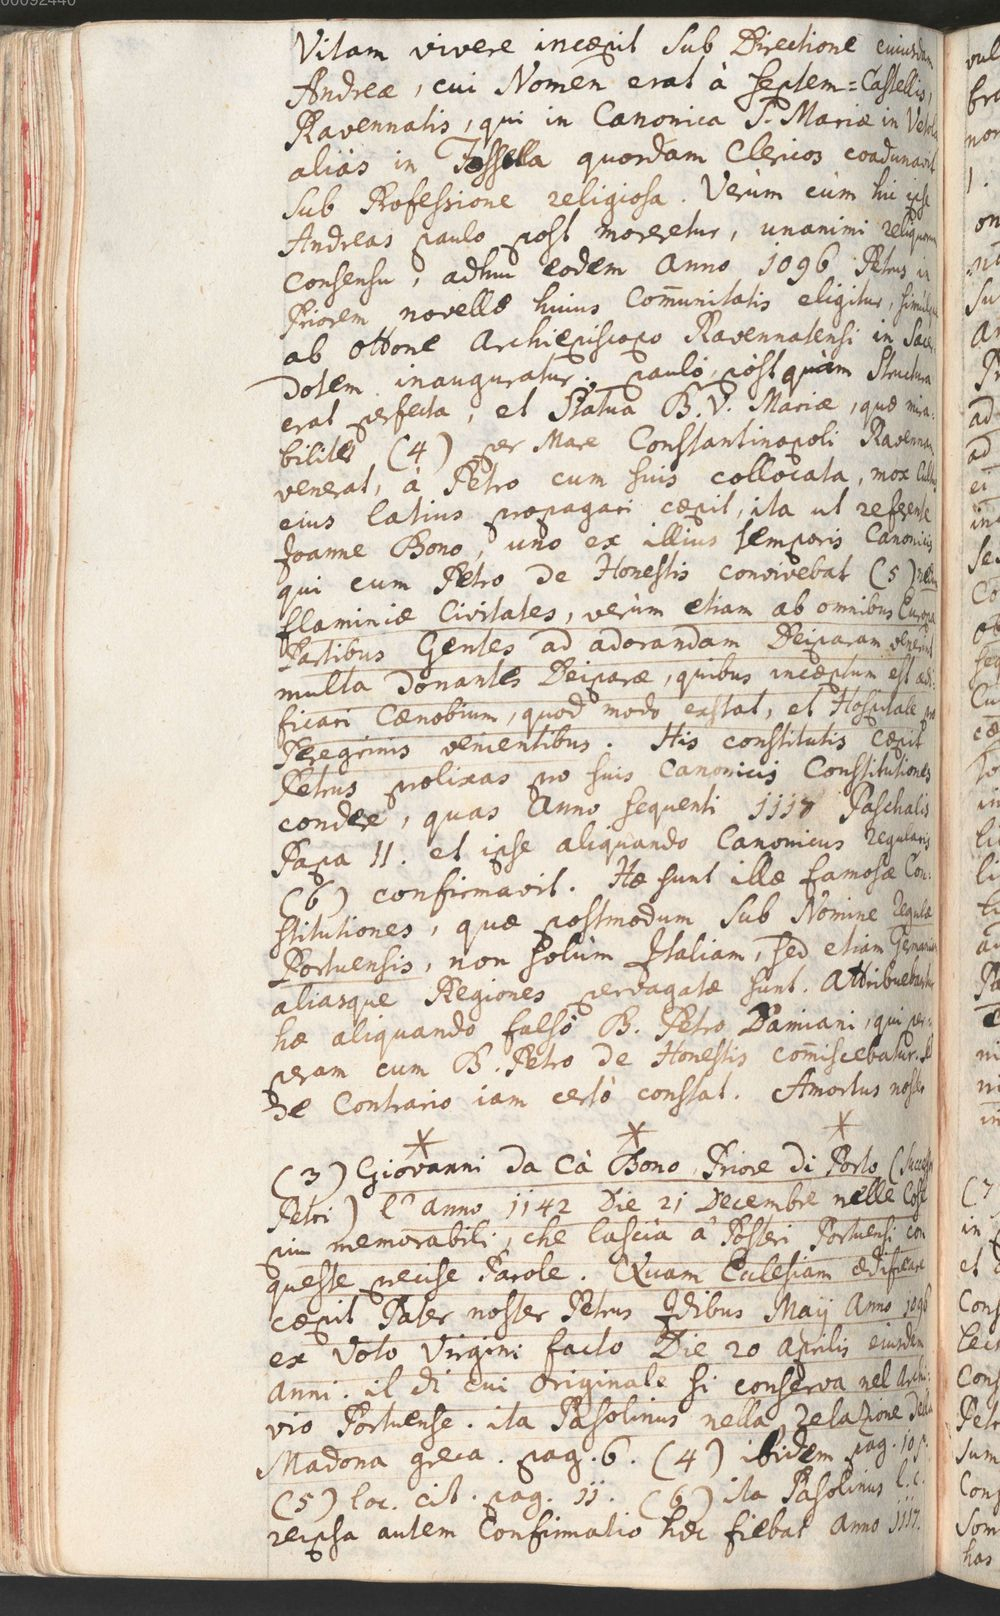 00092440
Vitam vivere incæpit sub Directione cuiusdam
Andreæ, cui Nomen erat à septem=Castellis,
Ravennatis, qui in Canonica S. Mariæ in
aliàs in Fossella quordam Clericos coadunavit
sub Professione religiosa. Verùm cùm hic ipse
Andreas paulo post moreretur, unanimi reliquorum
consensu, adhuc eodem Anno 1096 Petrus in
Priorem novellæ huius Com̄unitatis eligitur, simulque
ab Ottone Archiepiscopo Ravennatensi in Sacer-
dotem inauguratur; paulò postquàm Structura
erat perfecta, et Statua B. V. Mariæ, quæ mira-
biliter (4) per Mare Constantinopoli Ravennam
venerat, à Petro cum suis collocata, mox Cultus
eius latius propagari cæpit, ita ut referente
Joanne Bono, uno ex illius temporis Canonicis
qui cum Petro de Honestis convivebat (5)
flaminiæ Civitates, verùm etiam ab omnibus Europæ
Partibus Gentes ad adorandam Deiparam venerint
multa donantes Deiparæ, quibus incæptum est ædi-
ficari Cænobium, quod modo exstat, et Hospitale pro
Peregrinis venientibus. His constitutis cæpit
Petrus prolixas pro suis Canonicis Constitutiones
condere, quas Anno sequenti 1117 Paschalis
Papa II. et ipse aliquando Canonicus Regularis
(6) confirmavit. Hæ sunt illæ famosæ Con-
stitutiones, quæ postmodum sub Nomine Regulæ
Portuensis, non solùm Italiam, sed etiam Germaniam
aliasque Regiones pervagatæ sunt. Attribuebantur
hæ aliquando falsò B. Petro Damiani, qui per-
peram cum B. Petro de Honestis com̄iscebatur. Sed
de Contrario iam certò constat. Amortus noster
* * *
(3) Giovanni da Cà Bono Priore di Porto (Successor
Petri) l'anno 1142 Die 21 Decembre nelle Cose
piu memorabili, che lascia â Posteri Portuensi con
queste precise Parole. Quam Ecclesiam ædificare
cæpit Pater noster Petrus Idibus Maij Anno 1096
ex Voto Virgini facto Die 20 Aprilis eiusdem
Anni. il di cui Originale si conserva nel Archi-
vio Portuense. ita Pasolinus nella Relazione della
Madona greca. pag. 6. (4) ibidem pag. 10
(5) loc. cit. pag. 11. (6) ita Pasolinus l. c.
reipsa autem Confirmatio hæc fiebat Anno 1117.